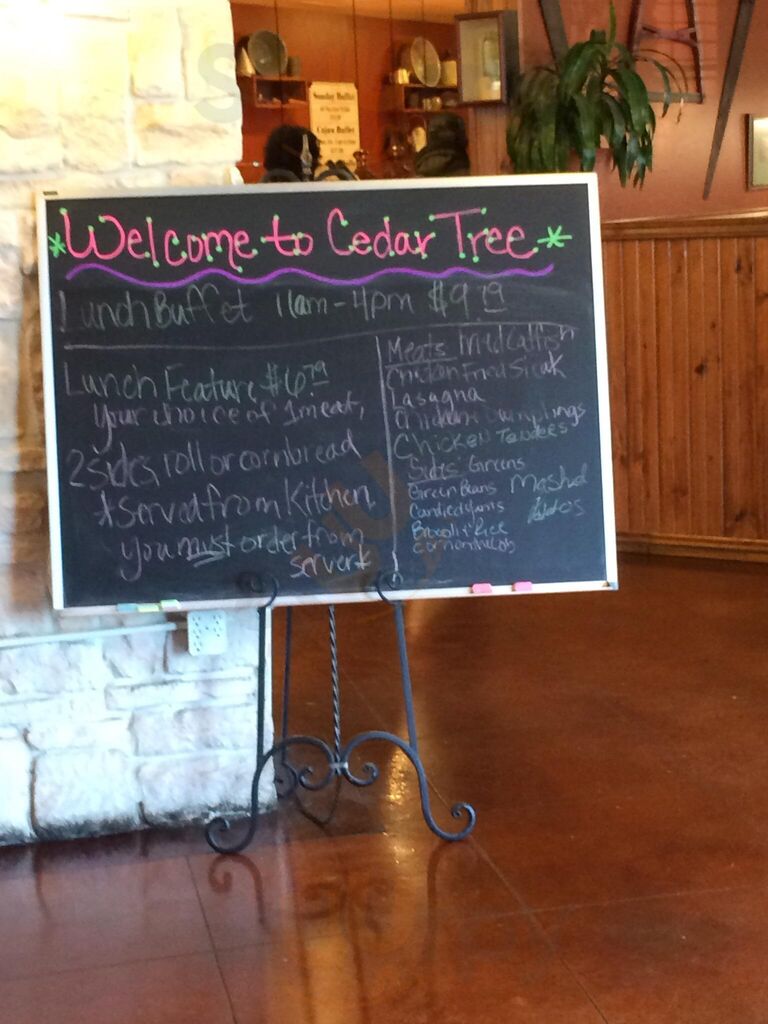 *Welcome to Cedar Tree*
Lunch Buffet 11am-4pm $9.79
Lunch Feature $6.79
Your choice of 1 meat,
2 sides, roll or cornbread
*Served from Kitchen
you must order from
server*
Meats Fried Catfish
Chicken Fried Steak
Lasagna
Chicken Dumplings
Chicken Tenders
Sides Greens
Green Beans Mashed
Candied Yams
Broccoli + Rice
Corn on the Cob
Sunday Buffet
Cajun Buffet